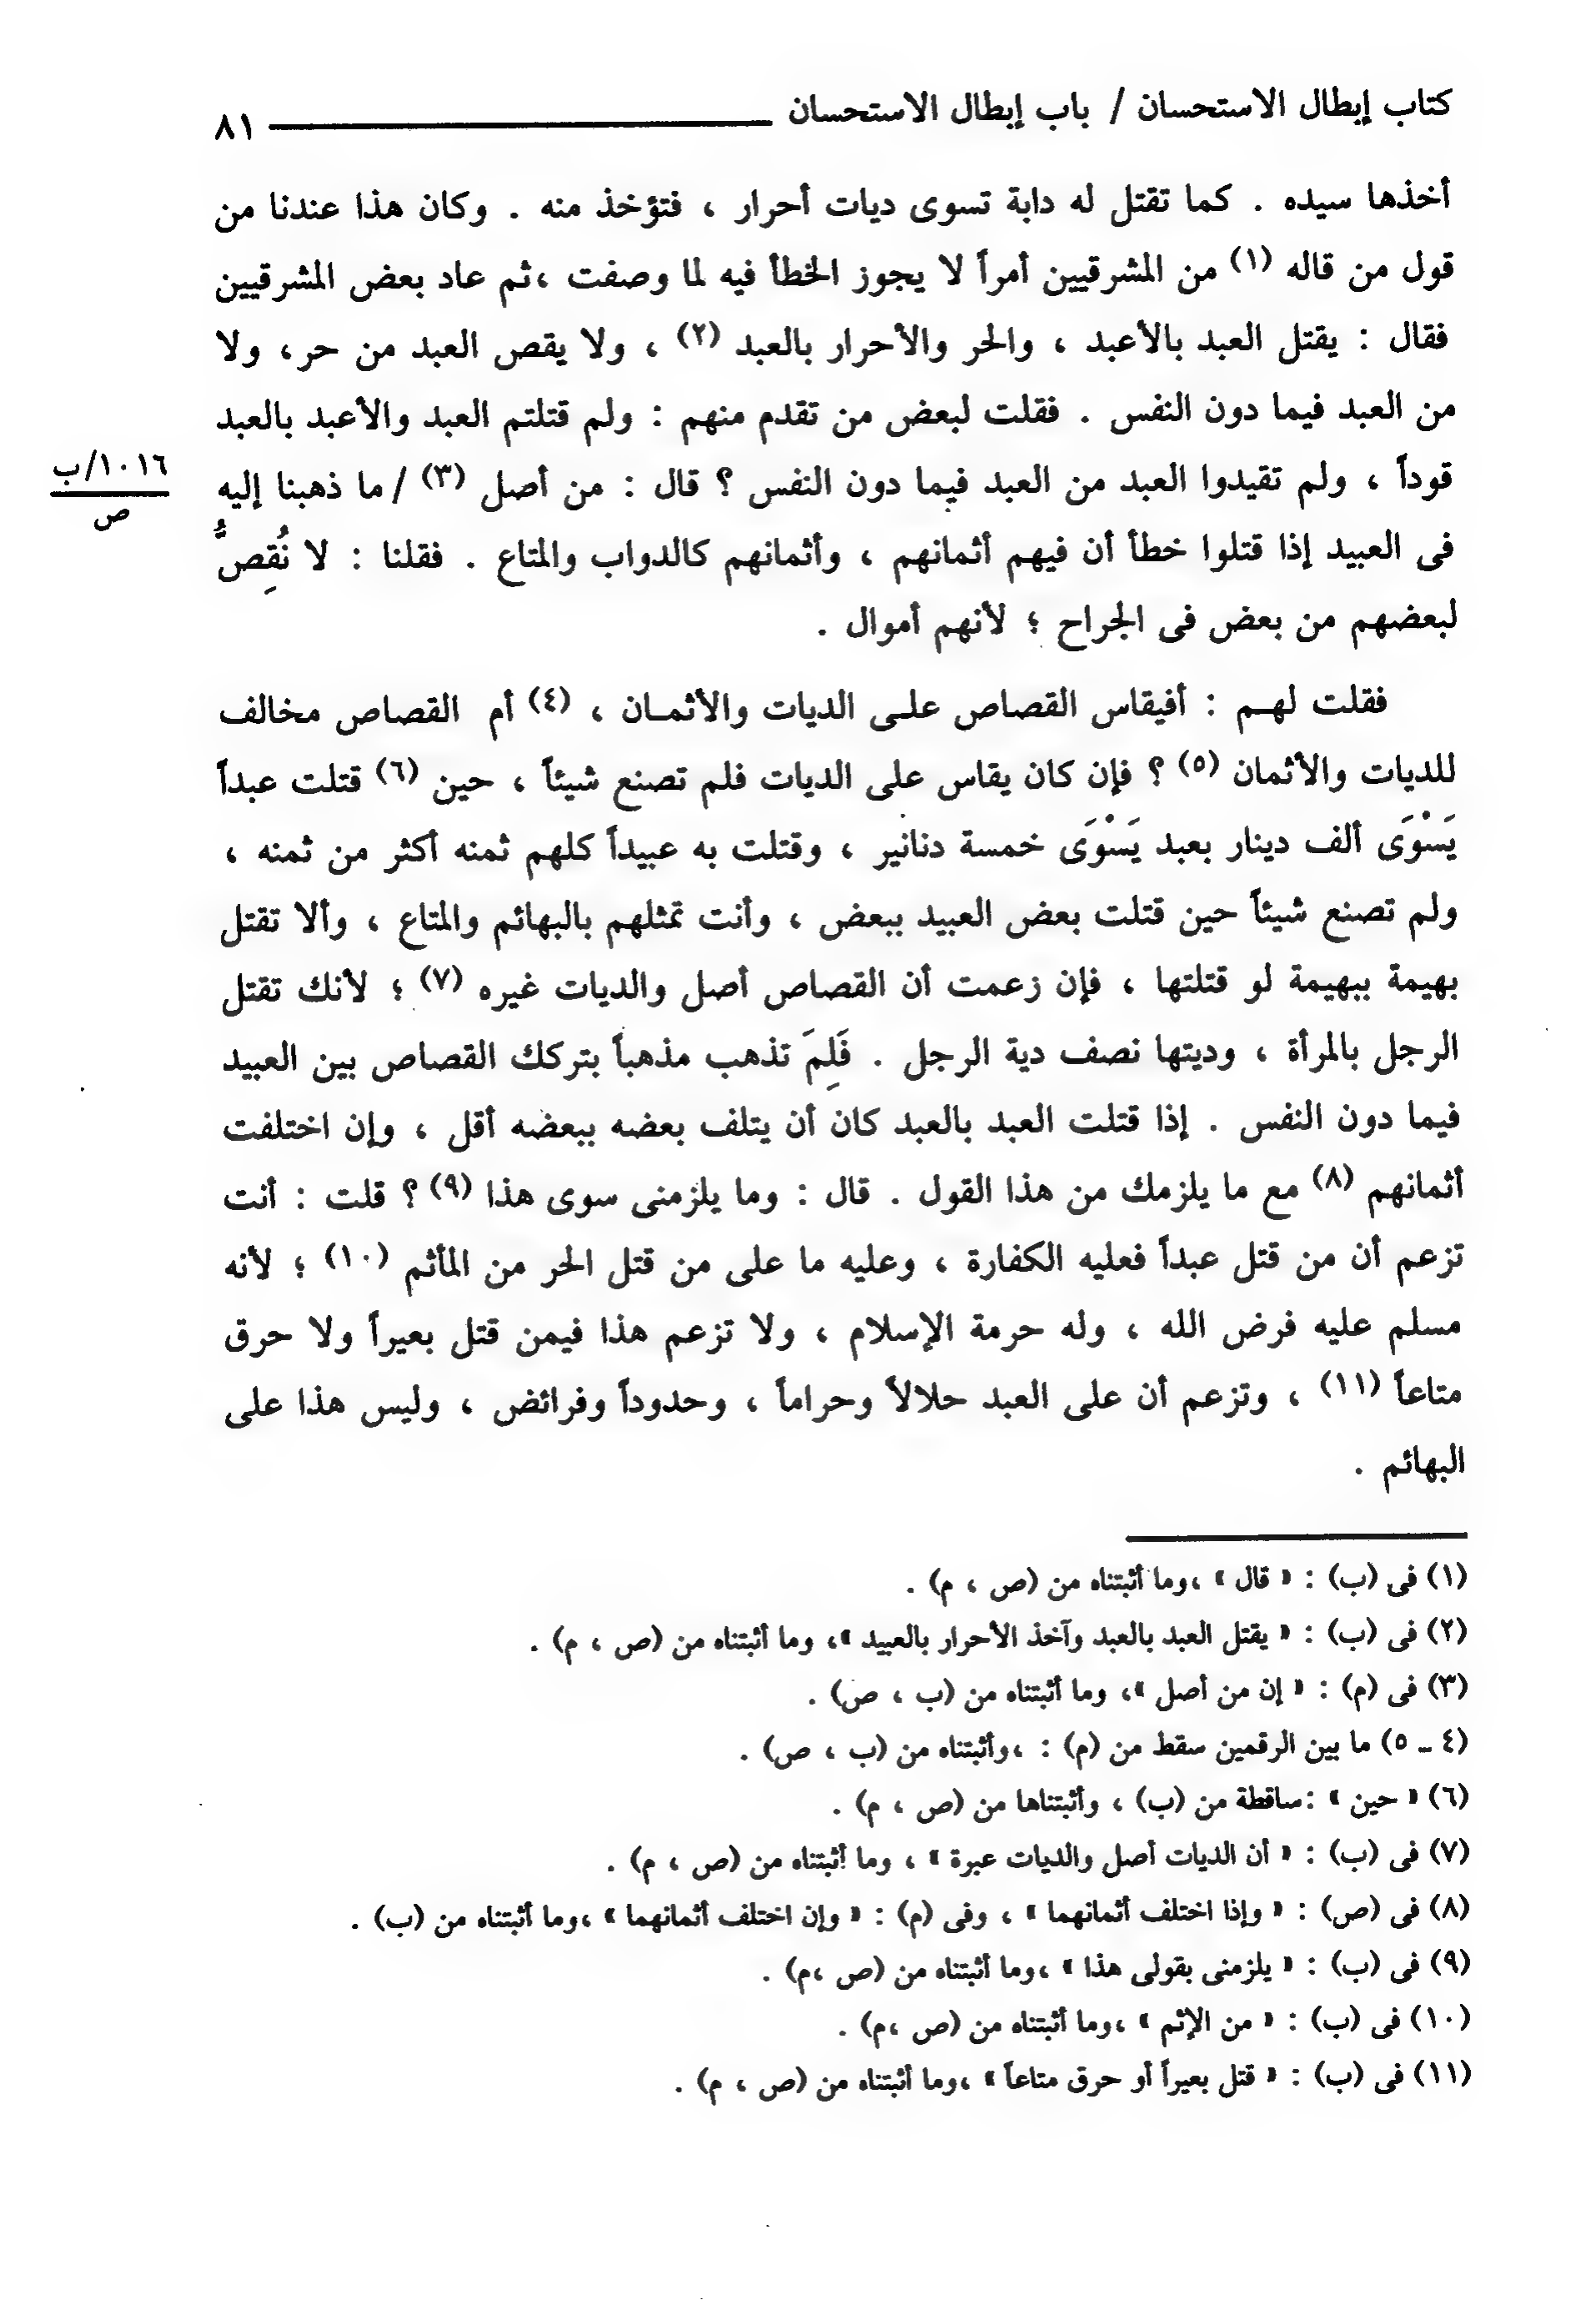 كتاب إبطال الاستحسان / باب إبطال الاستحسان ــــــــــــ ٨١
أخذها سيده . كما تقتل له دابة تسوى ديات أحرار ، فتؤخذ منه . وكان هذا عندنا من
قول من قاله (١) من المشرقيين أمراً لا يجوز الخطأ فيه لما وصفت ،ثم عاد بعض المشرقيين
فقال : يقتل العبد بالأعبد ، والحر والأحرار بالعبد (٢) ، ولا يقص العبد من حر، ولا
من العبد فيما دون النفس . فقلت لبعض من تقدم منهم : ولم قتلتم العبد والأعبد بالعبد
قوداً ، ولم تقيدوا العبد من العبد فيما دون النفس ؟ قال : من أصل (٣) / ما ذهبنا إليه
١٠١٦/ب
ص
فى العبيد إذا قتلوا خطأ أن فيهم أثمانهم ، وأثمانهم كالدواب والمتاع . فقلنا : لا نُقِصُّ
لبعضهم من بعض فى الجراح ؛ لأنهم أموال .
فقلت لهــم : أفيقاس القصاص علــى الديات والأثمــان ، (٤) أم القصاص مخالف
للديات والأثمان (٥) ؟ فإن كان يقاس على الديات فلم تصنع شيئاً ، حين (٦) قتلت عبداً
يَسْوَى ألف دينار بعبد يَسْوَى خمسة دنانير ، وقتلت به عبيداً كلهم ثمنه أكثر من ثمنه ،
ولم تصنع شيئاً حين قتلت بعض العبيد ببعض ، وأنت تمثلهم بالبهائم والمتاع ، وألا تقتل
بهيمة ببهيمة لو قتلتها ، فإن زعمت أن القصاص أصل والديات غيره (٧) ؛ لأنك تقتل
الرجل بالمرأة ، وديتها نصف دية الرجل . فَلِمَ تذهب مذهباً بتركك القصاص بين العبيد
فيما دون النفس . إذا قتلت العبد بالعبد كان أن يتلف بعضه ببعضه أقل ، وإن اختلفت
أثمانهم (٨) مع ما يلزمك من هذا القول . قال : وما يلزمنى سوى هذا (٩) ؟ قلت : أنت
تزعم أن من قتل عبداً فعليه الكفارة ، وعليه ما على من قتل الحر من المأثم (١٠) ؛ لأنه
مسلم عليه فرض الله ، وله حرمة الإسلام ، ولا تزعم هذا فيمن قتل بعيراً ولا حرق
متاعاً (١١) ، وتزعم أن على العبد حلالاً وحراماً ، وحدوداً وفرائض ، وليس هذا على
البهائم .
(١) فى (ب) : « قال » ،وما أثبتناه من (ص ، م) .
(٢) فى (ب) : « يقتل العبد بالعبد وآخذ الأحرار بالعبيد »، وما أثبتناه من (ص ، م) .
(٣) فى (م) : « إن من أصل »، وما أثبتناه من (ب ، ص) .
(٤ ـ ٥) ما بين الرقمين سقط من (م) : ،وأثبتناه من (ب ، ص) .
(٦) « حين » :ساقطة من (ب) ، وأثبتناها من (ص ، م) .
(٧) فى (ب) : « أن الديات أصل والديات عبرة » ، وما أثبتناه من (ص ، م) .
(٨) فى (ص) : « وإذا اختلف أثمانهما » ، وفى (م) : « وإن اختلف أثمانهما » ،وما أثبتناه من (ب) .
(٩) فى (ب) : « يلزمنى بقولى هذا » ،وما أثبتناه من (ص ،م) .
(١٠) فى (ب) : « من الإثم » ،وما أثبتناه من (ص ،م) .
(١١) فى (ب) : « قتل بعيراً أو حرق متاعاً » ،وما أثبتناه من (ص ، م) .